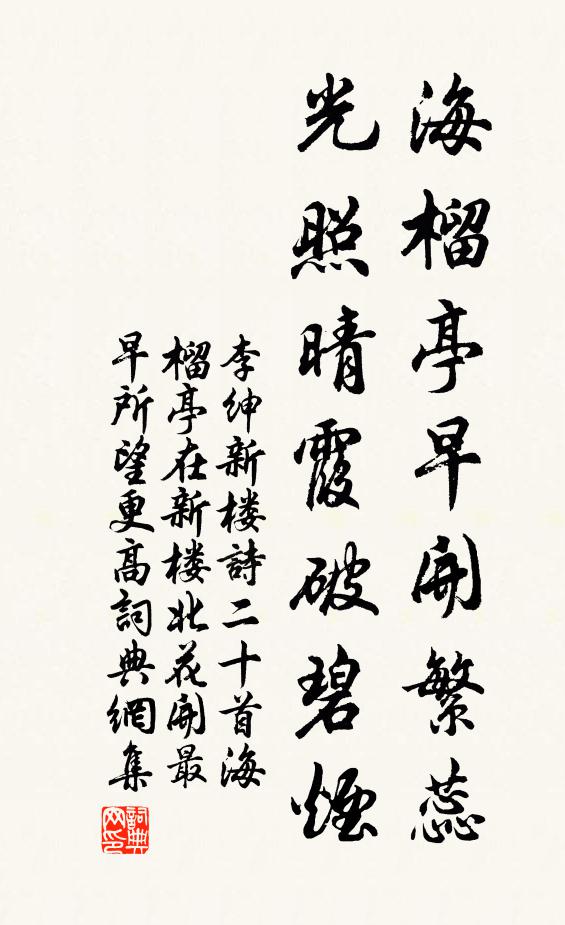 海榴亭早開繁蕊
光照晴霞破碧煙
李紳新楼詩二十首海
榴亭在新楼北花開最
早所望更高詞典網集
詞典
网印